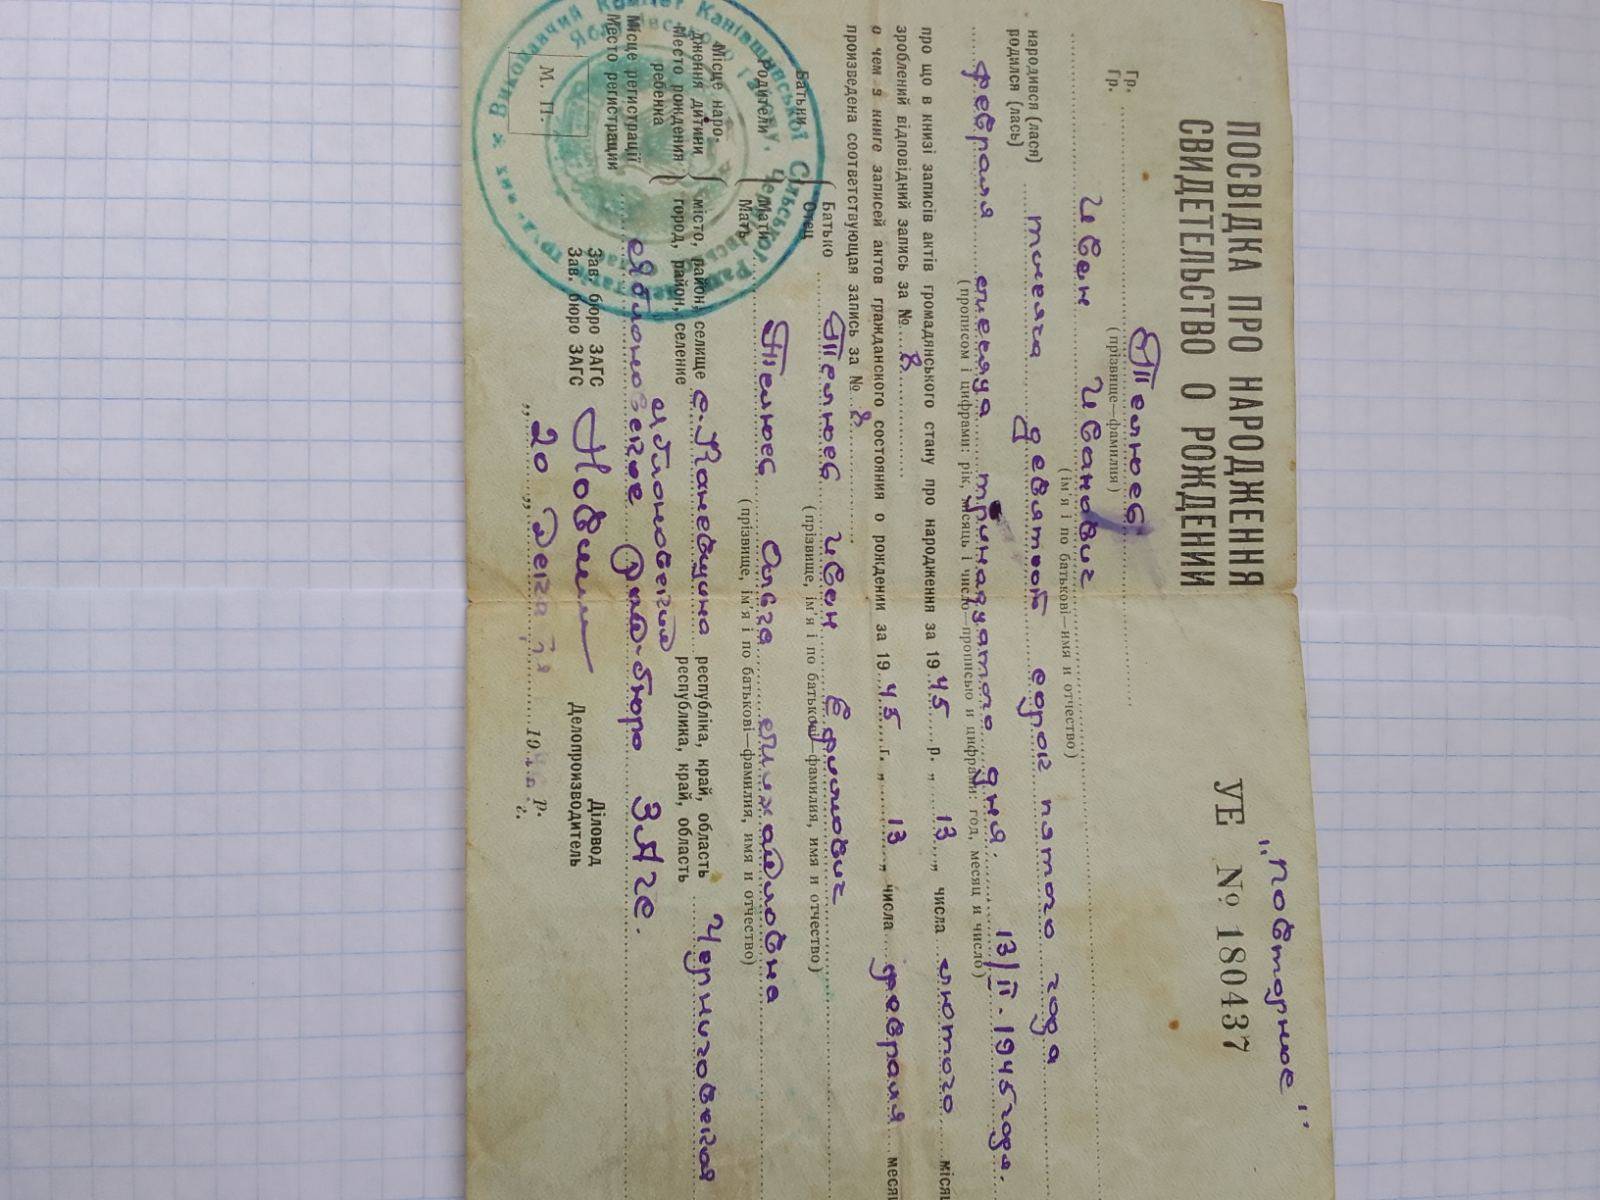 "Повторное"
ПОСВІДКА ПРО НАРОДЖЕННЯ
СВИДЕТЕЛЬСТВО О РОЖДЕНИИ
УЕ № 180437
Гр.
Гр.
(прізвище—фамилия)
Иван Иванович
(ім'я і по батькові—имя и отчество)
народився (лася)
родился (лась)
тысяча девятьсот сорок пятого года
февраля месяца тринадцатого дня. 13/II-1945 года.
(прописом і цифрами: рік, місяць і число—прописью и цифрами: год, месяц и число)
про що в книзі записів актів громадянського стану про народження за 1945 р. „13„ числа лютого
зроблений відповідний запись за № 8
о чем в книге записей актов гражданского состояния о рождении за 1945 г. „13„ числа февраля
произведена соответствующая запись за № 8
Батьки
Родители
Батько
Отец
Иван Ефимович
(прізвище, ім'я і по батькові—фамилия, имя и отчество)
Мати
Мать
Ольга Михайловна
(прізвище, ім'я і по батькові—фамилия, имя и отчество)
Місце народження дитини
Место рождения ребенка
місто, район, селище
город, район, селение
с. Каневщина
Яблоновский
республіка, край, область
республика, край, область
Черниговская
Місце регистрації
Место регистрации
Яблоновское рай-бюро ЗАГС.
Зав. бюро ЗАГС
Зав. бюро ЗАГС
Діловод
Делопроизводитель
М. П.
„20„ 19 р.
г.
Виконавчий Комітет Канівщинської Сільської Ради